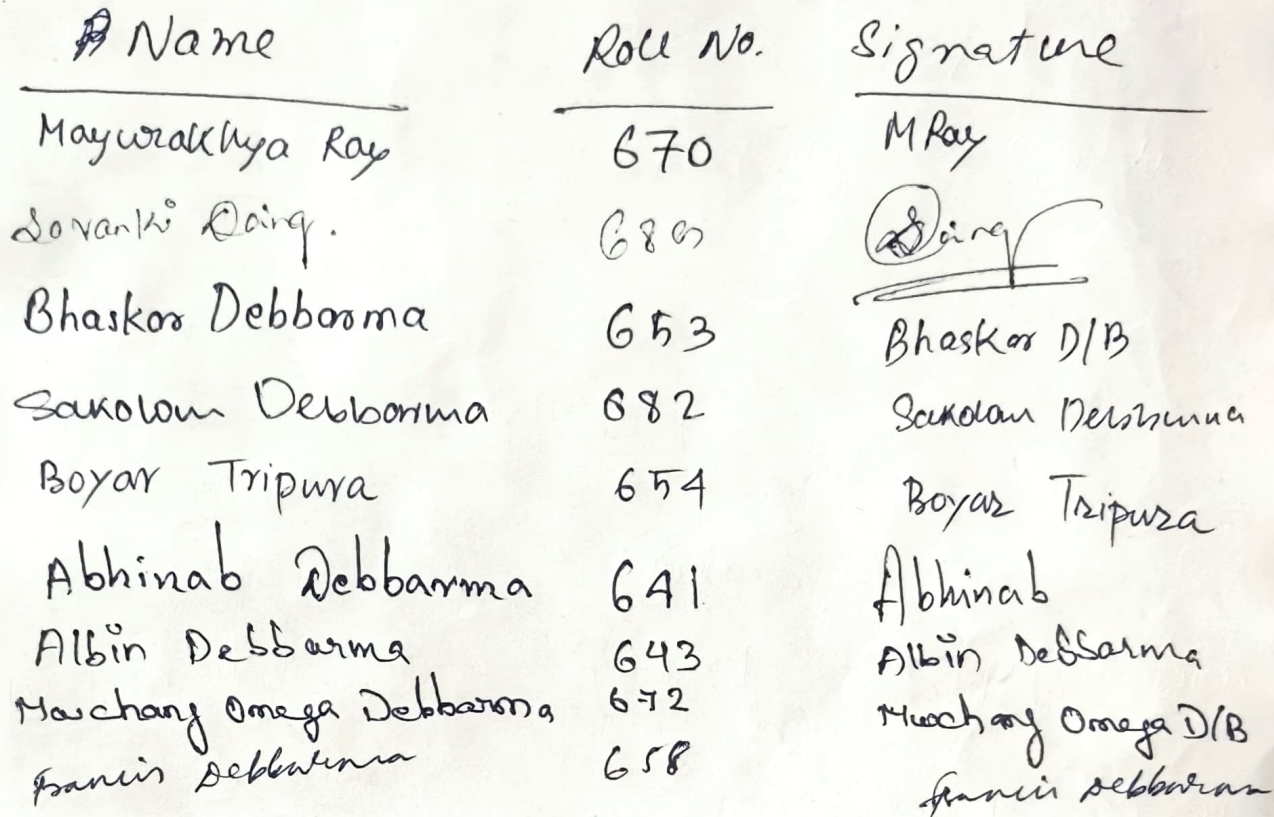 Name Roll No. Signature
Mayurakhya Ray 670 M Ray
Sovanki 689
Bhaskar Debbarma 653 Bhaskar D/B
Sakolom Debbarma 682 Sakolom Debbarma
Boyar Tripura 654 Boyar Tripura
Abhinab Debbarma 641 Abhinab
Albin Debbarma 643 Albin Debbarma
Omega Debbarma 672 Omega D/B
Francis Debbarma 658 Francis Debbarma